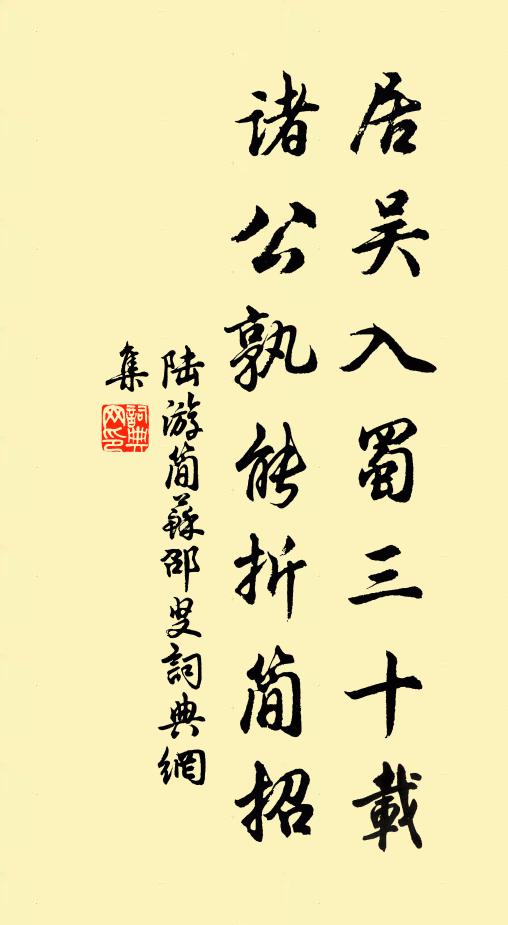 居吴入蜀三十載
諸公孰能折簡招
陸游簡蘇邵叟詞典網
集
詞典網印